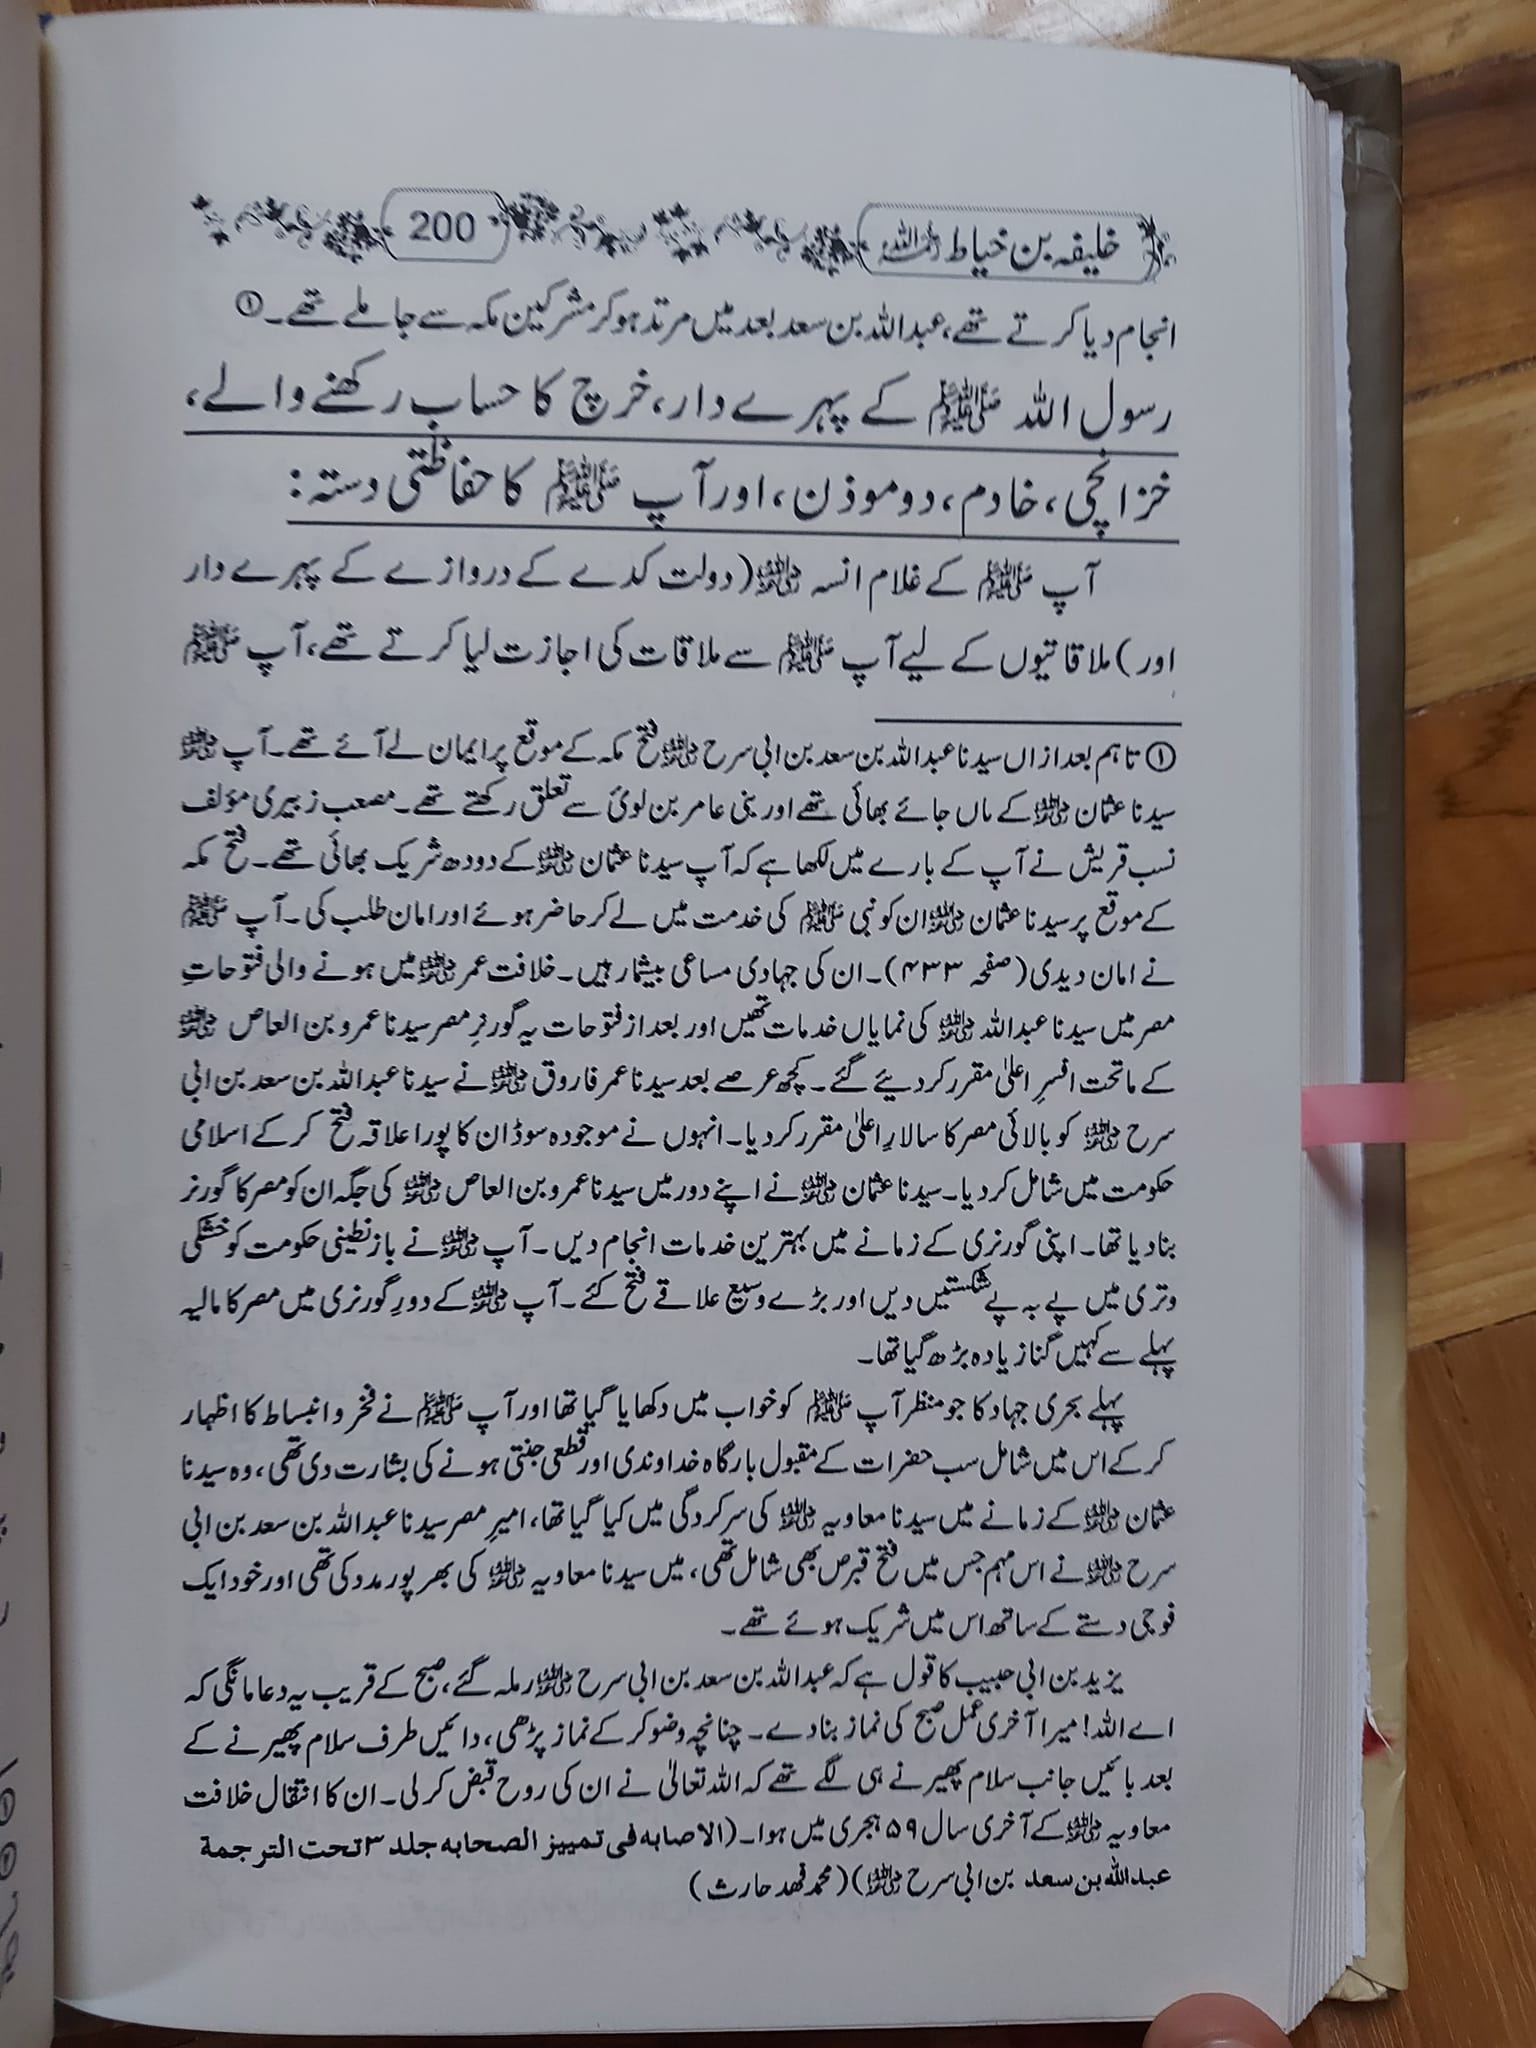 خلیفہ بن خیاط رحمہ اللہ 200
انجام دیا کرتے تھے، عبداللہ بن سعد بعد میں مرتد ہو کر مشرکین مکہ سے جا ملے تھے۔①
رسول اللہ ﷺ کے پہرے دار، خرچ کا حساب رکھنے والے،
خزانچی، خادم، دو موذن، اور آپ ﷺ کا حفاظتی دستہ:
آپ ﷺ کے غلام انسہ رضی اللہ عنہ (دولت کدے کے دروازے کے پہرے دار
اور) ملاقاتیوں کے لیے آپ ﷺ سے ملاقات کی اجازت لیا کرتے تھے، آپ ﷺ
① تاہم بعد ازاں سیدنا عبداللہ بن سعد بن ابی سرح رضی اللہ عنہ فتح مکہ کے موقع پر ایمان لے آئے تھے۔ آپ رضی اللہ عنہ
سیدنا عثمان رضی اللہ عنہ کے ماں جائے بھائی تھے اور بنی عامر بن لوئ سے تعلق رکھتے تھے۔ مصعب زبیری مؤلف
نسب قریش نے آپ کے بارے میں لکھا ہے کہ آپ سیدنا عثمان رضی اللہ عنہ کے دودھ شریک بھائی تھے۔ فتح مکہ
کے موقع پر سیدنا عثمان رضی اللہ عنہ ان کو نبی ﷺ کی خدمت میں لے کر حاضر ہوئے اور امان طلب کی۔ آپ ﷺ
نے امان دیدی (صفحہ ۴۳۳)۔ ان کی جہادی مساعی بیشمار ہیں۔ خلافت عمر رضی اللہ عنہ میں ہونے والی فتوحاتِ
مصر میں سیدنا عبداللہ رضی اللہ عنہ کی نمایاں خدمات تھیں اور بعد از فتوحات یہ گورنرِ مصر سیدنا عمرو بن العاص رضی اللہ عنہ
کے ماتحت افسرِ اعلیٰ مقرر کر دیئے گئے۔ کچھ عرصے بعد سیدنا عمر فاروق رضی اللہ عنہ نے سیدنا عبداللہ بن سعد بن ابی
سرح رضی اللہ عنہ کو بالائی مصر کا سالارِ اعلیٰ مقرر کر دیا۔ انہوں نے موجودہ سوڈان کا پورا علاقہ فتح کر کے اسلامی
حکومت میں شامل کر دیا۔ سیدنا عثمان رضی اللہ عنہ نے اپنے دور میں سیدنا عمرو بن العاص رضی اللہ عنہ کی جگہ ان کو مصر کا گورنر
بنا دیا تھا۔ اپنی گورنری کے زمانے میں بہترین خدمات انجام دیں۔ آپ رضی اللہ عنہ نے بازنطینی حکومت کو خشکی
و تری میں پے بہ پے شکستیں دیں اور بڑے وسیع علاقے فتح کئے۔ آپ رضی اللہ عنہ کے دورِ گورنری میں مصر کا مالیہ
پہلے سے کہیں گنا زیادہ بڑھ گیا تھا۔
پہلے بحری جہاد کا جو منظر آپ ﷺ کو خواب میں دکھایا گیا تھا اور آپ ﷺ نے فخر و انبساط کا اظہار
کر کے اس میں شامل سب حضرات کے مقبول بارگاہ خداوندی اور قطعی جنتی ہونے کی بشارت دی تھی، وہ سیدنا
عثمان رضی اللہ عنہ کے زمانے میں سیدنا معاویہ رضی اللہ عنہ کی سرکردگی میں کیا گیا تھا، امیرِ مصر سیدنا عبداللہ بن سعد بن ابی
سرح رضی اللہ عنہ نے اس مہم جس میں فتح قبرص بھی شامل تھی، میں سیدنا معاویہ رضی اللہ عنہ کی بھر پور مدد کی تھی اور خود ایک
فوجی دستے کے ساتھ اس میں شریک ہوئے تھے۔
یزید بن ابی حبیب کا قول ہے کہ عبداللہ بن سعد بن ابی سرح رضی اللہ عنہ رملہ گئے، صبح کے قریب یہ دعا مانگی کہ
اے اللہ! میرا آخری عمل صبح کی نماز بنا دے۔ چنانچہ وضو کر کے نماز پڑھی، دائیں طرف سلام پھیرنے کے
بعد بائیں جانب سلام پھیرنے ہی لگے تھے کہ اللہ تعالیٰ نے ان کی روح قبض کر لی۔ ان کا انتقال خلافت
معاویہ رضی اللہ عنہ کے آخری سال ۵۹ ہجری میں ہوا۔ (الاصابہ فی تمییز الصحابہ جلد ۳ تحت الترجمة
عبداللہ بن سعد بن ابی سرح رضی اللہ عنہ) (محمد فہد حارث)